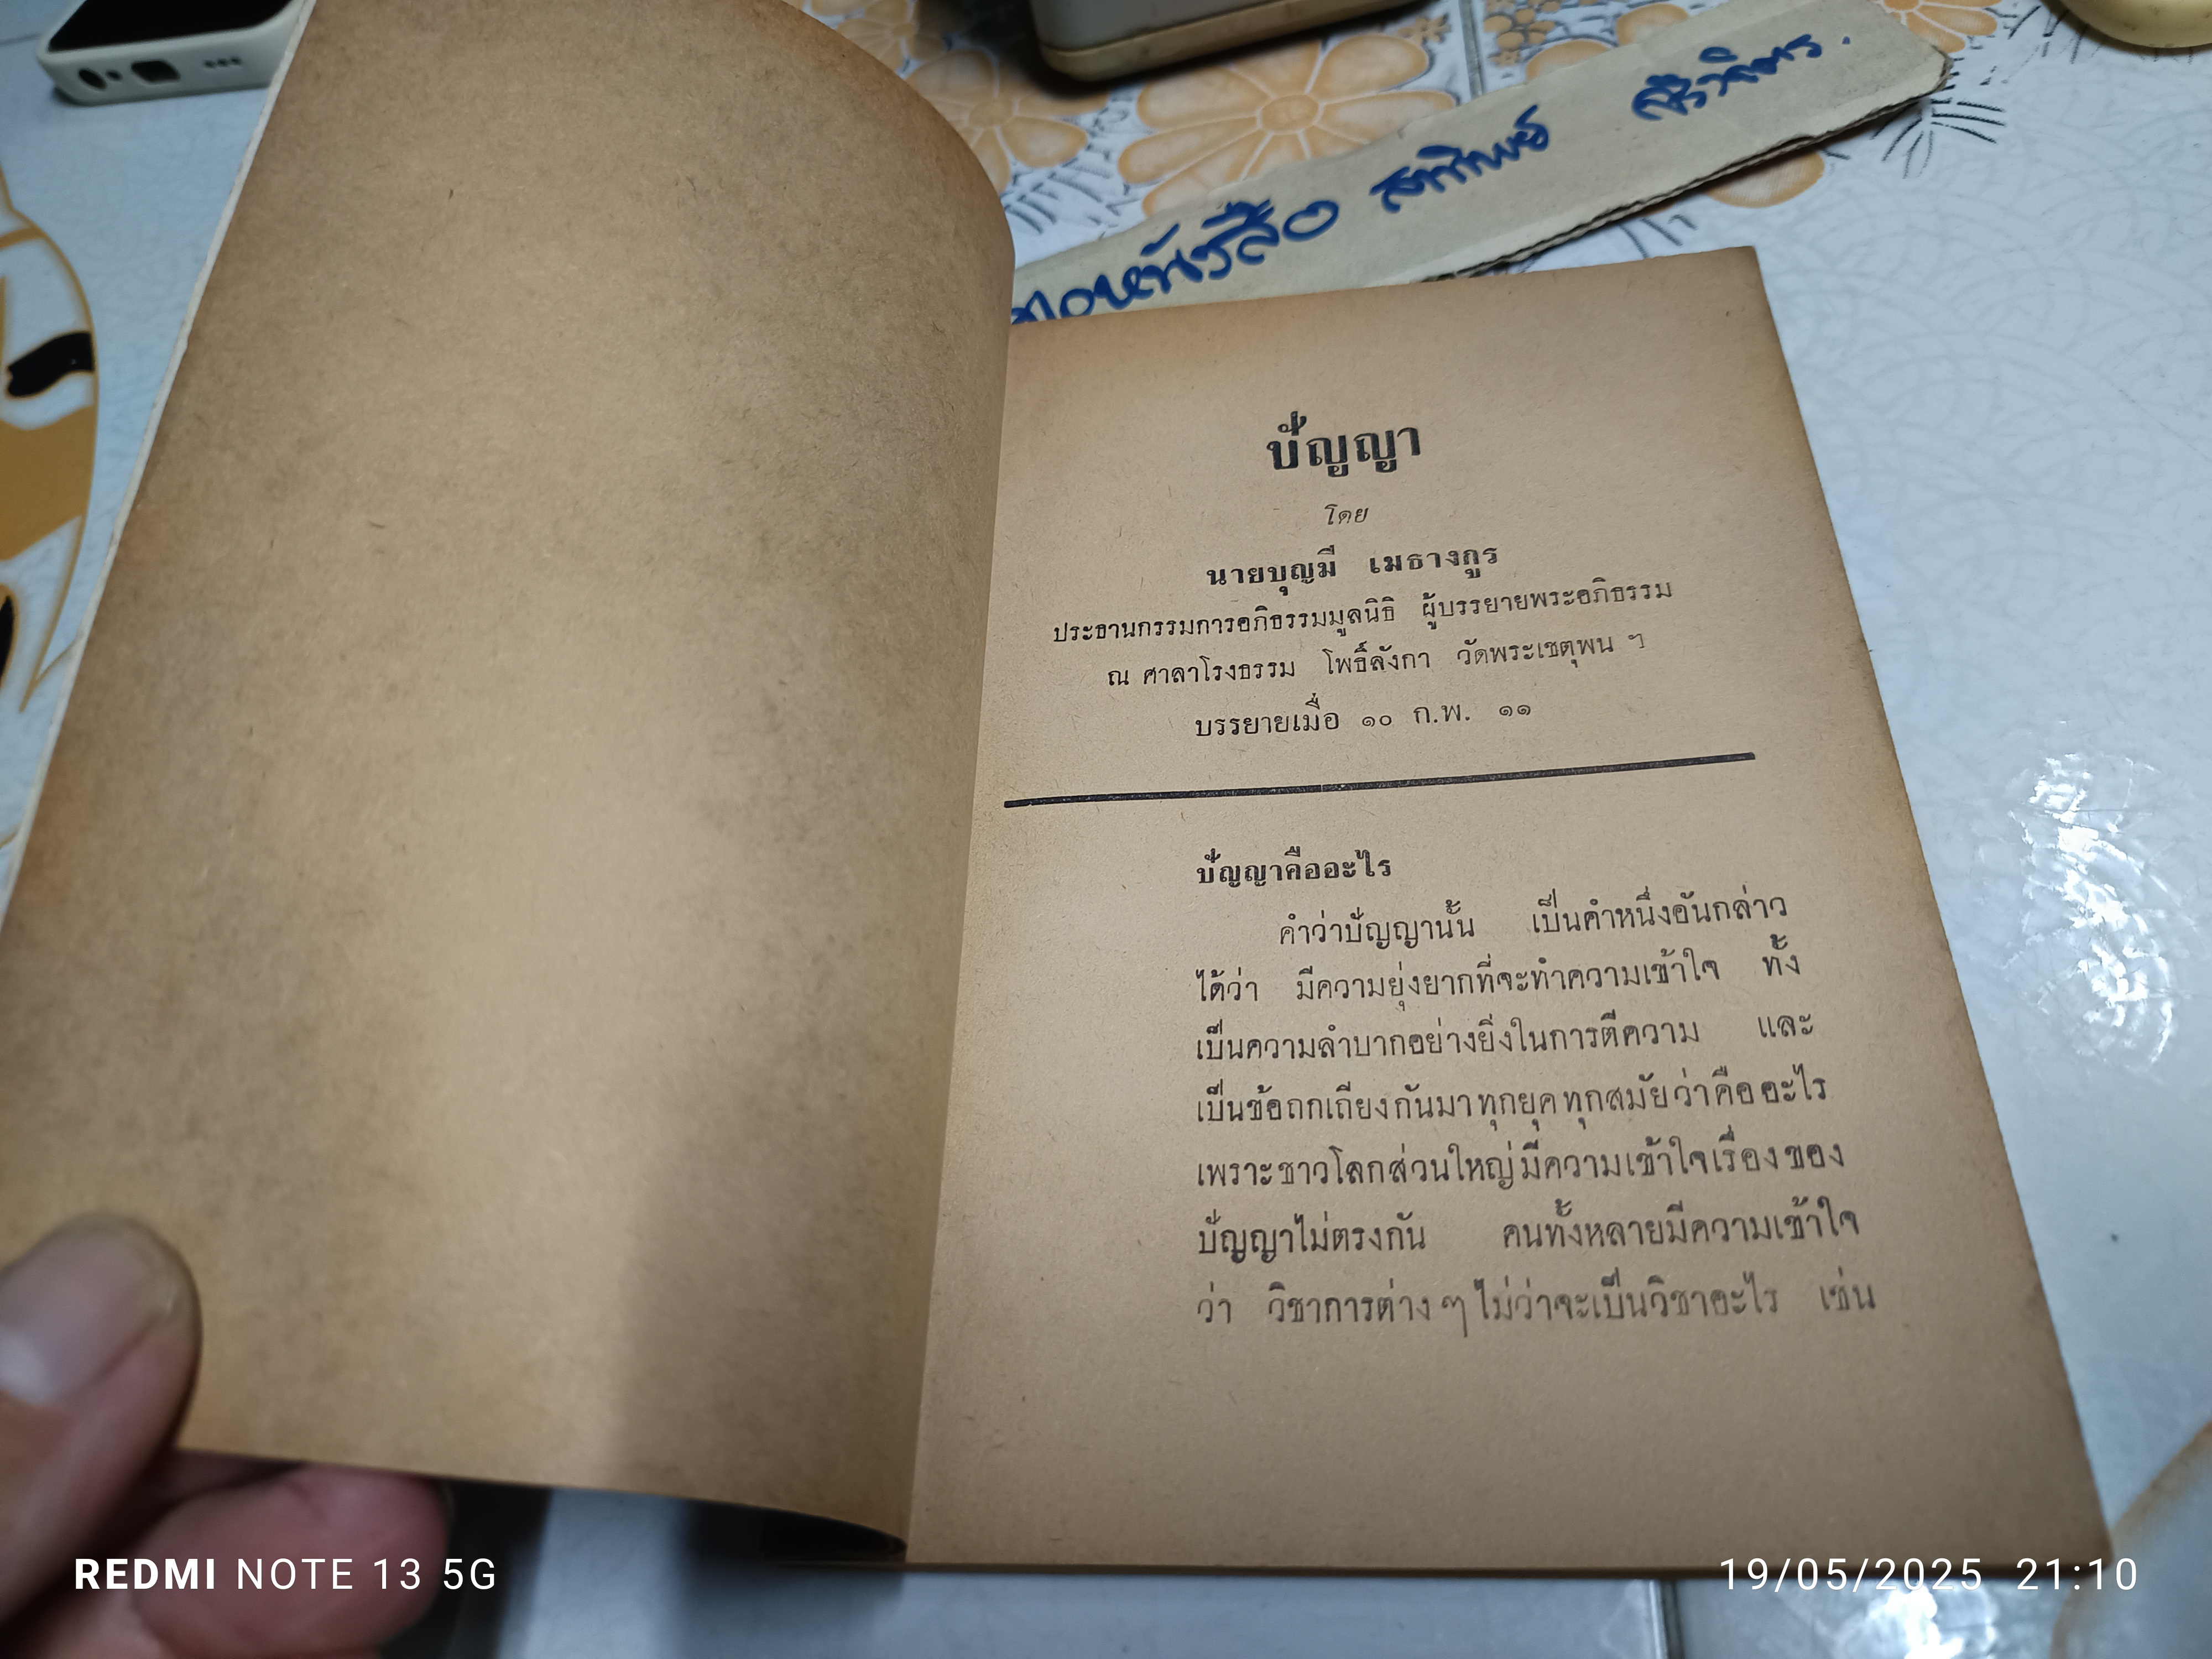 ยหนังสือ สาทิพย์ ศิริจิตร.
ปัญญา
โดย
นายบุญมี เมธางกูร
ประธานกรรมการอภิธรรมมูลนิธิ ผู้บรรยายพระอภิธรรม
ณ ศาลาโรงธรรม โพธิ์ลังกา วัดพระเชตุพน ฯ
บรรยายเมื่อ ๑๐ ก.พ. ๑๑
ปัญญาคืออะไร
คำว่าปัญญานั้น เป็นคำหนึ่งอันกล่าว
ได้ว่า มีความยุ่งยากที่จะทำความเข้าใจ ทั้ง
เป็นความลำบากอย่างยิ่งในการตีความ และ
เป็นข้อถกเถียงกันมาทุกยุคทุกสมัยว่าคืออะไร
เพราะชาวโลกส่วนใหญ่มีความเข้าใจเรื่องของ
ปัญญาไม่ตรงกัน คนทั้งหลายมีความเข้าใจ
ว่า วิชาการต่าง ๆ ไม่ว่าจะเป็นวิชาอะไร เช่น
REDMI NOTE 13 5G
19/05/2025 21:10